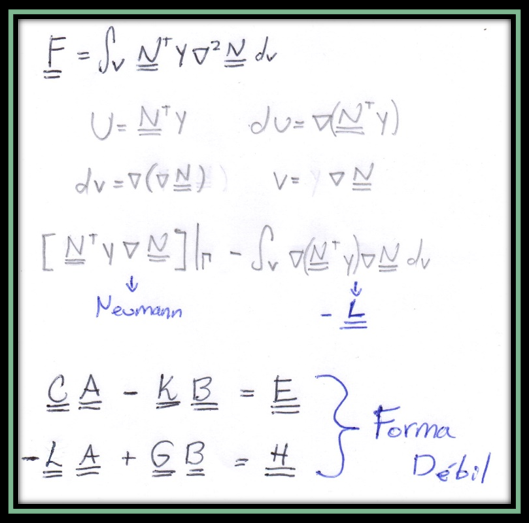 F = ∫v Nᵀ Y ∇² N dv
U = Nᵀ Y    dU = ∇(Nᵀ Y)
dv = ∇(∇N)    V = ∇N
[Nᵀ Y ∇N]|Γ - ∫v ∇(Nᵀ Y)∇N dv
↓ ↓
Neumann - L
C A - K B = E
-L A + G B = H
Forma
Débil